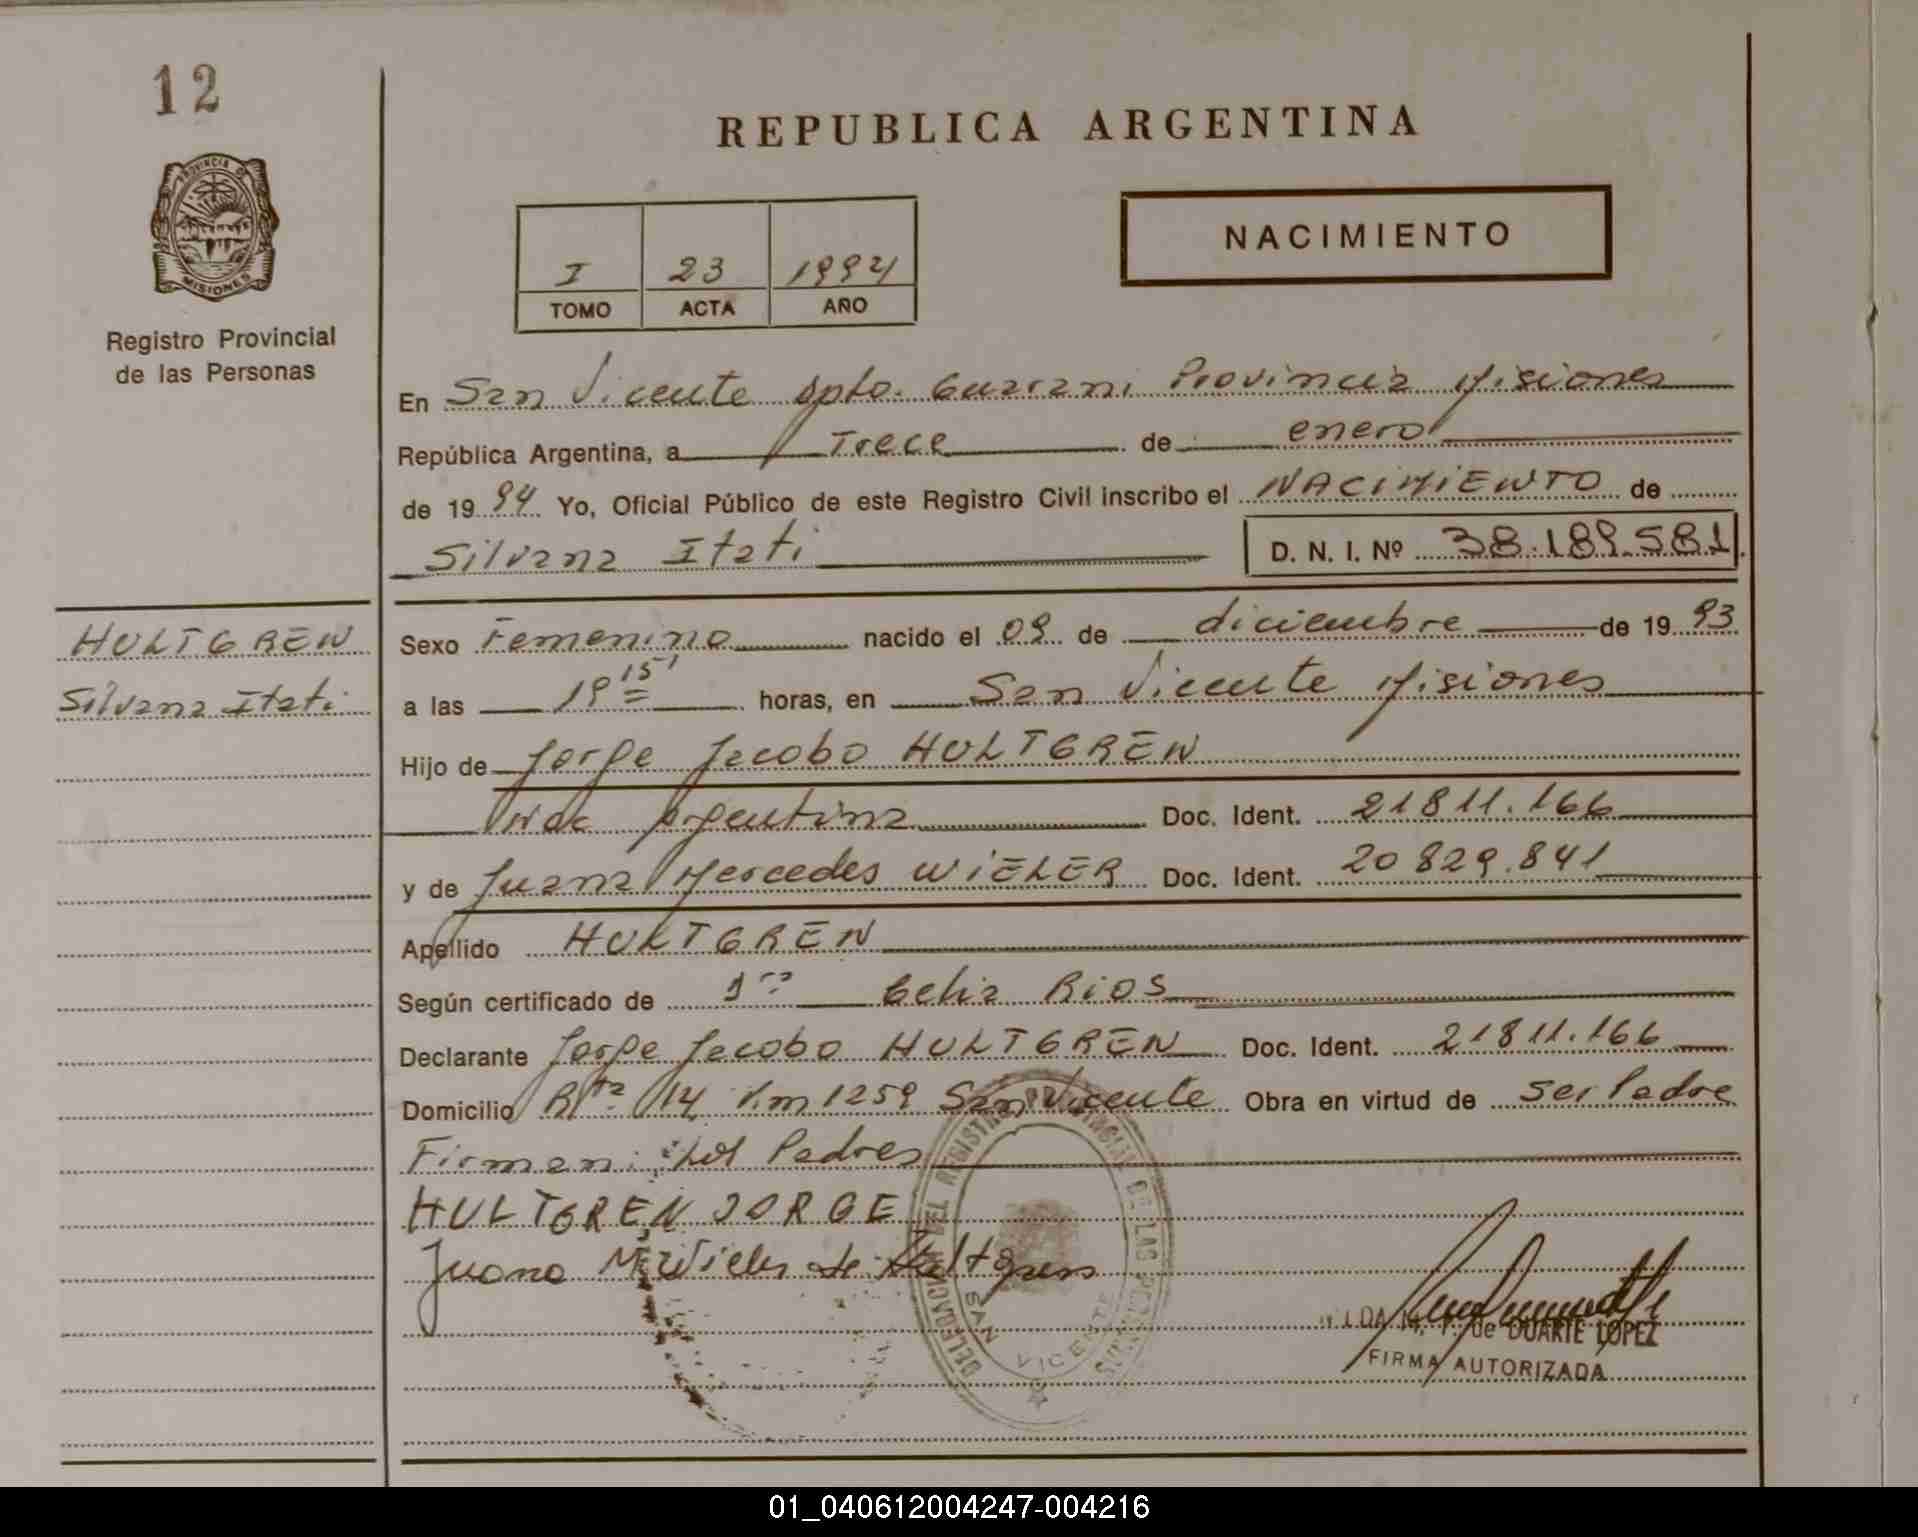 12
PROVINCIA DE
MISIONES
Registro Provincial
de las Personas
REPUBLICA ARGENTINA
I 23 1994
TOMO ACTA AÑO
NACIMIENTO
En San Vicente Dpto. Guarani Provincia Misiones
República Argentina, a Trece de enero
de 1994 Yo, Oficial Público de este Registro Civil inscribo el NACIMIENTO de
Silvana Itati D. N. I. Nº 38.189.581
HULTGREN
Silvana Itati
Sexo Femenino nacido el 09 de diciembre de 1993
a las 19 15 horas, en San Vicente Misiones
Hijo de Jorge Jacobo HULTGREN
Nac Argentina Doc. Ident. 21811.166
y de Juana Mercedes WIELER Doc. Ident. 20829.841
Apellido HULTGREN
Según certificado de Celia Rios
Declarante Jorge Jacobo HULTGREN Doc. Ident. 21811.166
Domicilio Rta 14 Km 1259 San Vicente Obra en virtud de ser Padre
Firman: los Padres
HULTGREN JORGE
Juana M Wieler de Hultgren
DELEGACION DEL REGISTRO PROVINCIAL DE LAS PERSONAS
SAN VICENTE
de DUARTE LOPEZ
FIRMA AUTORIZADA
01_040612004247-004216